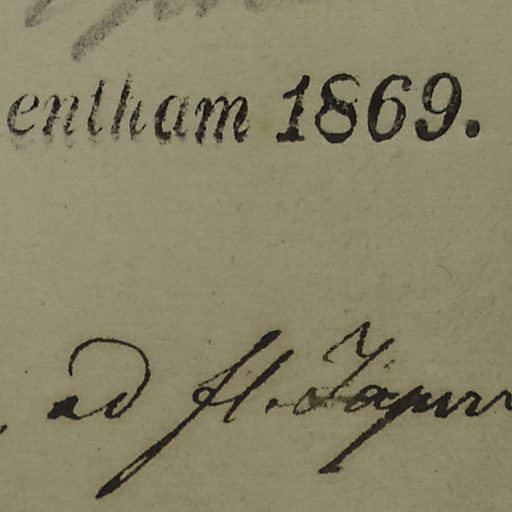 entham 1869.
ad fl. Tapur